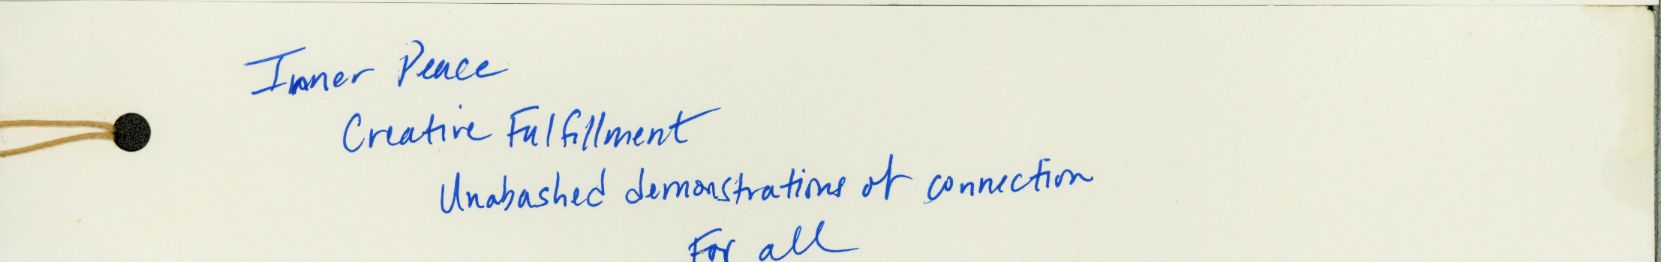 Inner Peace
Creative Fulfillment
Unabashed demonstrations of connection
For all